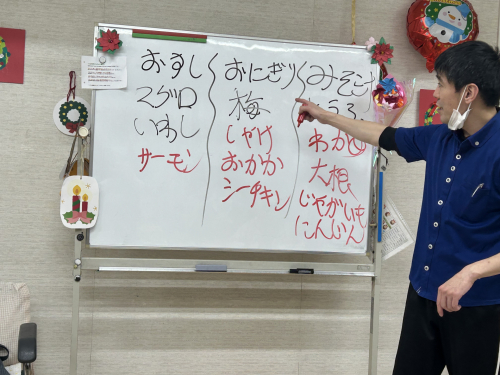 おすし
マグロ
いわし
サーモン
おにぎり
梅
しゃけ
おかか
シーチキン
みそ
わか
大根
じゃがいも
にんじん